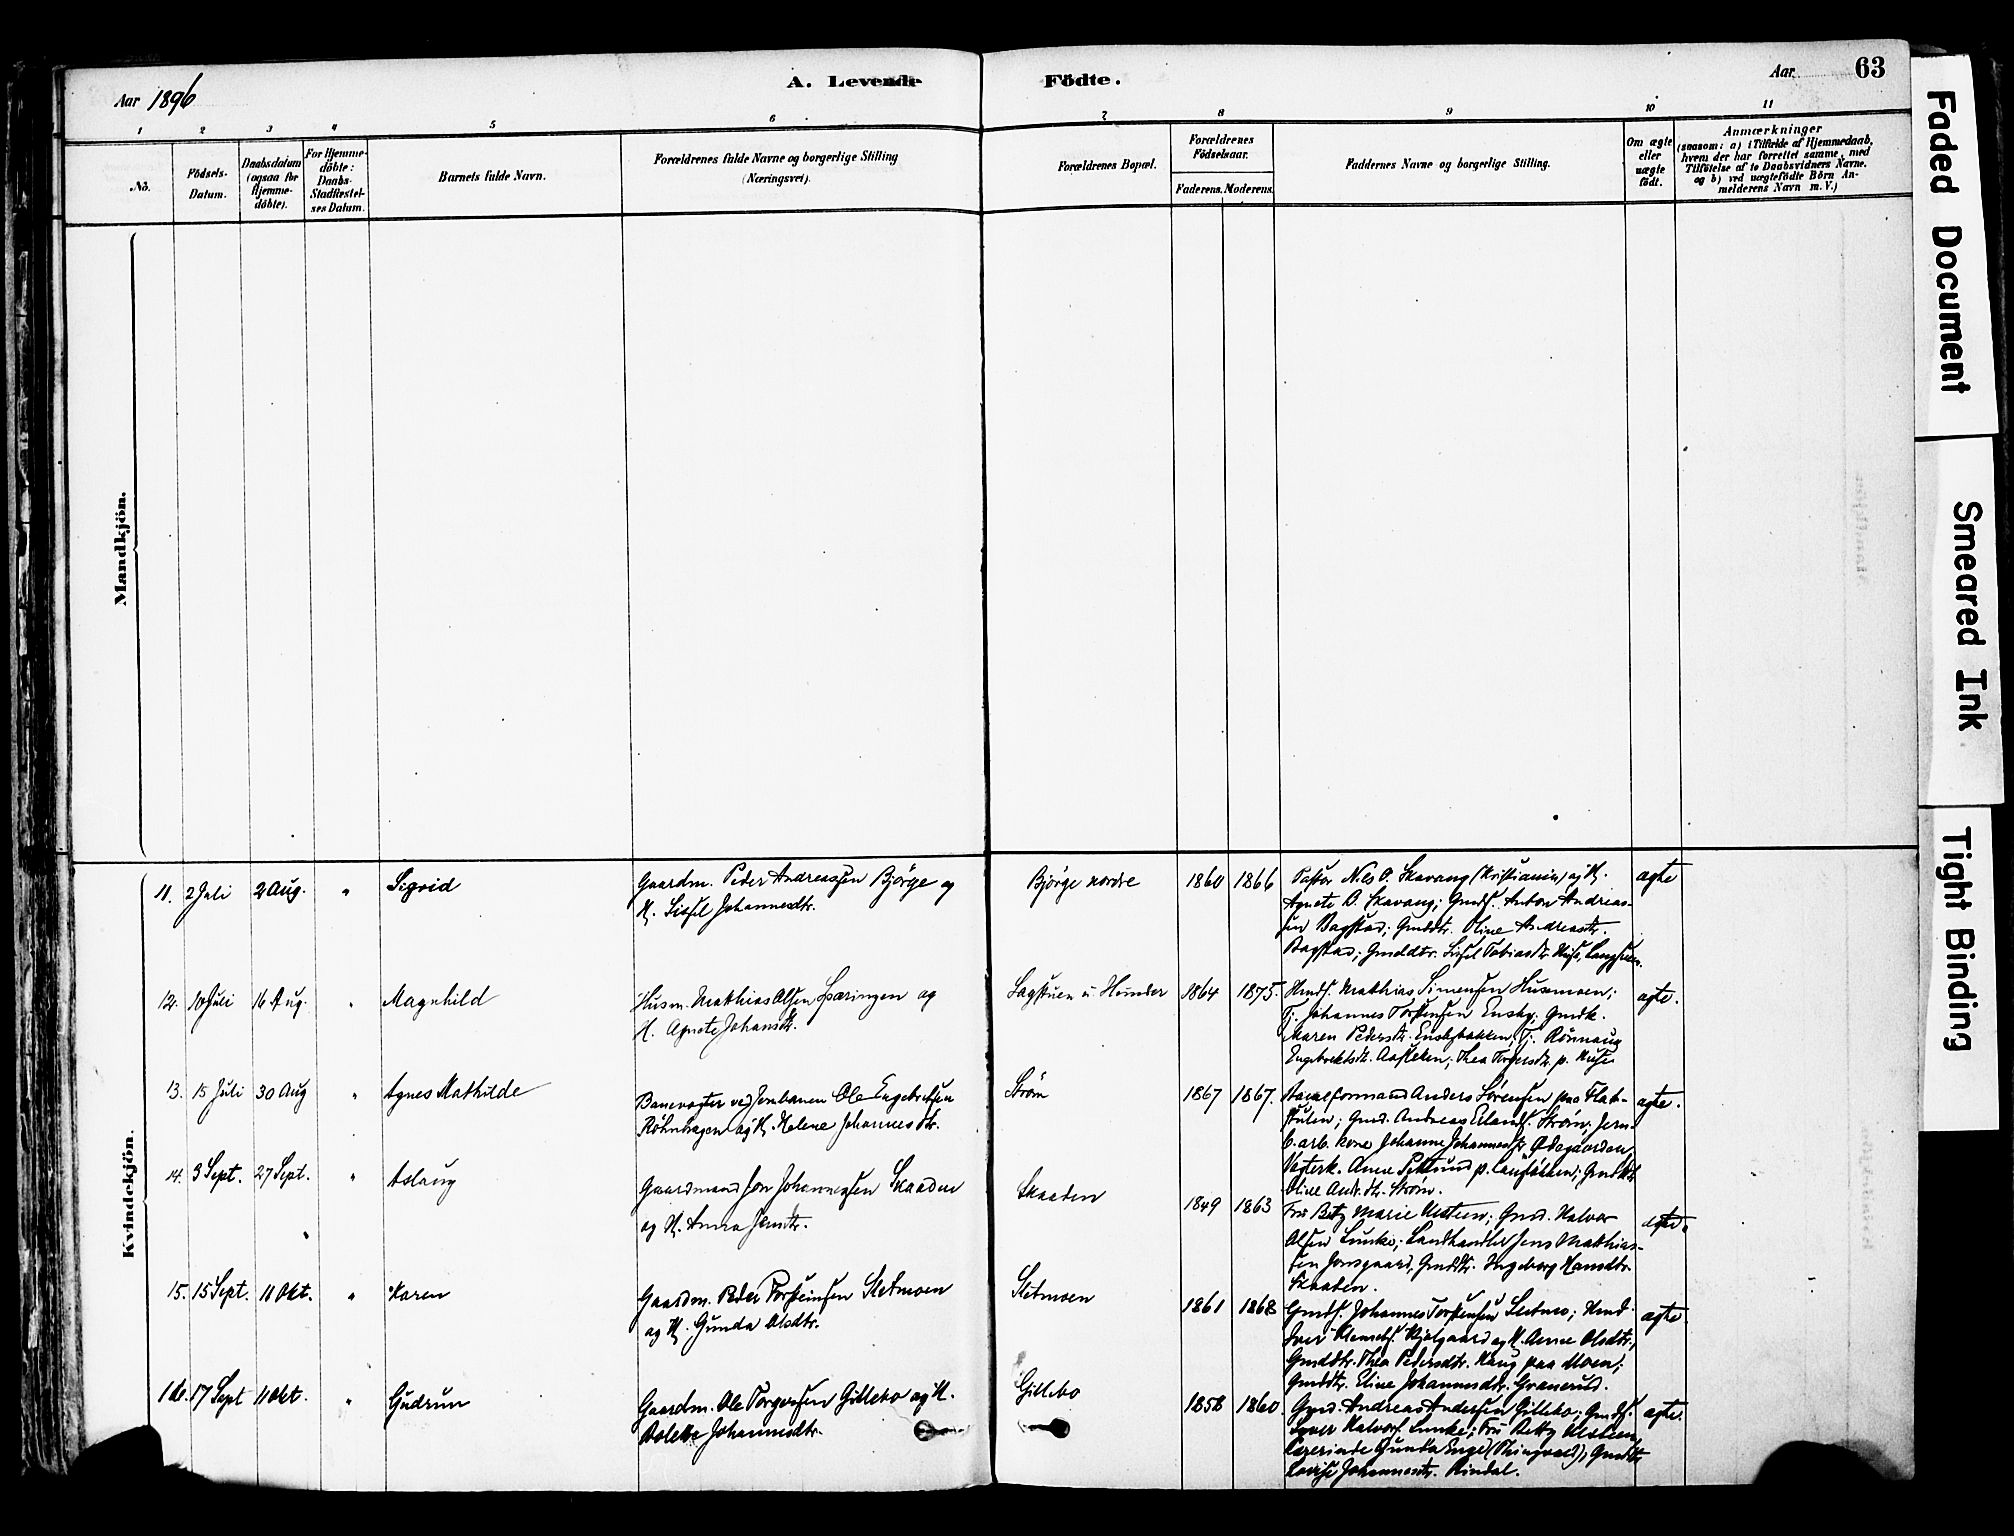 Aar 1896
A. Levende Födte.
Aar 63
1 2 3 4 5 6 7 8 9 10 11
No.
Födsels-
Datum.
Daabsdatum
(ogsaa for
Hjemme-
döbte).
For Hjemme-
döbte:
Daabs-
Stadfæstel-
ses Datum.
Barnets fulde Navn.
Forældrenes fulde Navne og borgerlige Stilling
(Næringsvei).
Forældrenes Bopæl.
Forældrenes
Födselsaar.
Faderens. Moderens.
Faddernes Navne og borgerlige Stilling.
Om ægte
eller
uægte
födt.
Anmærkninger
(saasom: a) i Tilfælde af Hjemmedaab,
hvem der har forrettet samme, med
Tilföielse af to Daabsvidners Navne.
og b) ved uægtefödte Börn An-
melderens Navn m. V.)
Mandkjön.
Kvindekjön.
11. 2 Juli 2 Aug. " Sigrid
Gaardm. Peder Andreassen Bjørge og
K. Sissel Johannesdtr.
Bjørge nordre
1860 1866
Pastor Nils O. Skavang (Kristiania) og K.
Agnete B. Skavang; Gmds. Anton Andreas-
sen Bagstad; Gmddtr. Oline Andreasdtr.
Bagstad; Gmddtr. Sissel Tobiasdtr.
ægte
12. 10 Juli 16 Aug. " Magnhild
Husm. Mathias Olsen Sparingen og
K. Agnete Johansdtr.
Sagstuen u. Hunder
1864 1875.
Hmds. Mathias Simensen Husmoen;
Tj. Johannes Torstensen Ensby; Gmdk.
Maren Pedersdtr. Ensbybakken; Tj. Rønnaug
Engebretsdtr.
ægte.
13. 15 Juli 30 Aug " Agnes Mathilde
Banevogter ved Jernbanen Ole Engebretsen
og K. Helene Johannesdtr.
Strøm
1867 1867.
Anders Sørensen paa
Gmd. Andreas Strøm; Jern-
b. arb. kone Johanne Johannesdtr. Ødegaarden,
Vogterk. Anne
Oline Andr. dtr. Strøm.
ægte.
14. 3 Sept. 27 Sept. " Aslaug
Gaardmand Jon Johannessen Skaaden
og K. Anna Jensdtr.
Skaaden
1849 1863
Fru Betzy Marie Ulsteen; Gmd. Halvor
Olsen Lunke; Landhandler Jens Mathias-
sen Jonsgaard, Gmddtr. Ingeborg Hansdtr.
Skaaden.
ægte.
15. 15 Sept. 11 Okt. " Karen
Gaardm. Peder Torstensen Sletmoen
og K. Gunda Olsdtr.
Sletmoen
1861 1868
Gmds. Johannes Torstensen Sletmo; Hmd
Iver og K. Anne Olsdtr;
Gmddtr. Thea Pedersdtr. Haug paa Moen;
Gmddtr. Eline Johannesdtr. Granerud.
ægte
16. 17 Sept 11 Okt. " Gudrun
Gaardm. Ole Torgersen Gillebo og K.
Bolette Johannesdtr.
Gillebo
1858 1860.
Gmd. Andreas Andersen Gillebo; Gmds.
Syver Halvors. Lunke; Fru Betty Ulsteen,
Lærerinde Gunda Enge (Thingvold); Gmddtr
Lovise Johannesdtr. Rindal.
ægte.
Faded Document
Smeared Ink
Tight Binding